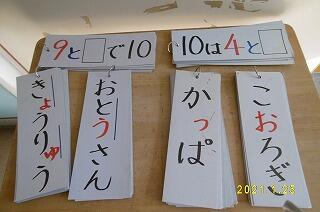 9と□で10
10は4と□
きょうりゅう
おとうさん
かっぱ
こおろぎ
2021 1 25